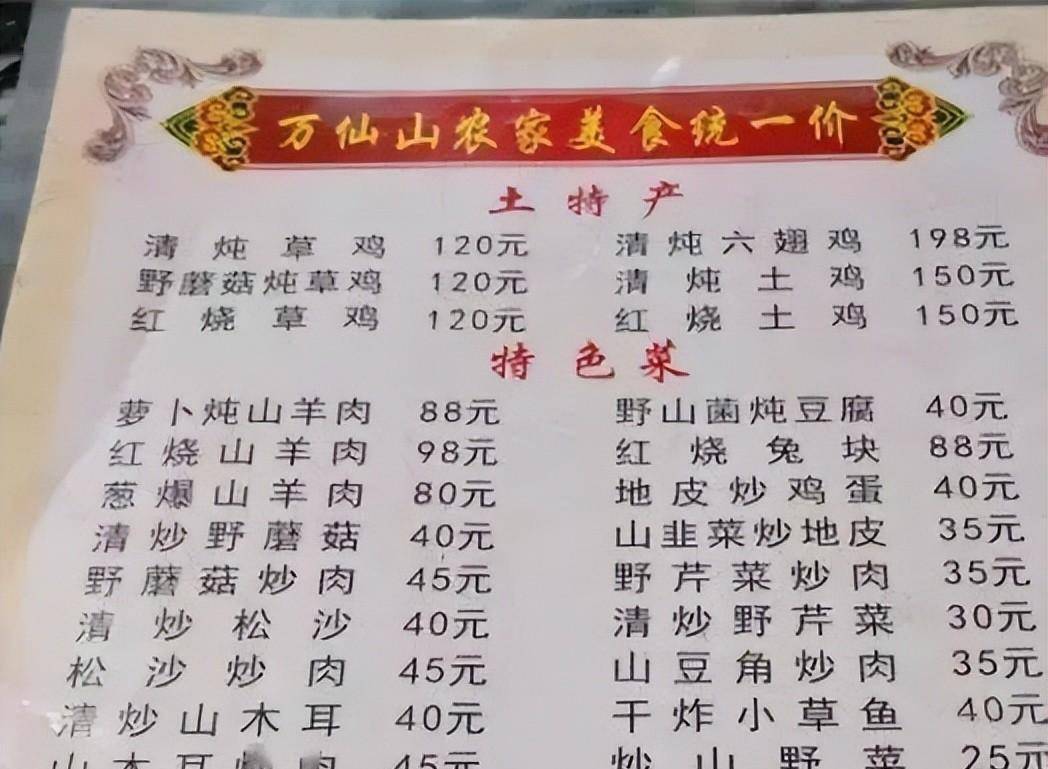 万仙山农家美食统一价
土特产
清炖草鸡 120元 清炖六翅鸡 198元
野蘑菇炖草鸡 120元 清炖土鸡 150元
红烧草鸡 120元 红烧土鸡 150元
特色菜
萝卜炖山羊肉 88元 野山菌炖豆腐 40元
红烧山羊肉 98元 红烧兔块 88元
葱爆山羊肉 80元 地皮炒鸡蛋 40元
清炒野蘑菇 40元 山韭菜炒地皮 35元
野蘑菇炒肉 45元 野芹菜炒肉 35元
清炒松沙 40元 清炒野芹菜 30元
松沙炒肉 45元 山豆角炒肉 35元
清炒山木耳 40元 干炸小草鱼 40元
山木耳 肉 45元 炒山野菜 25元